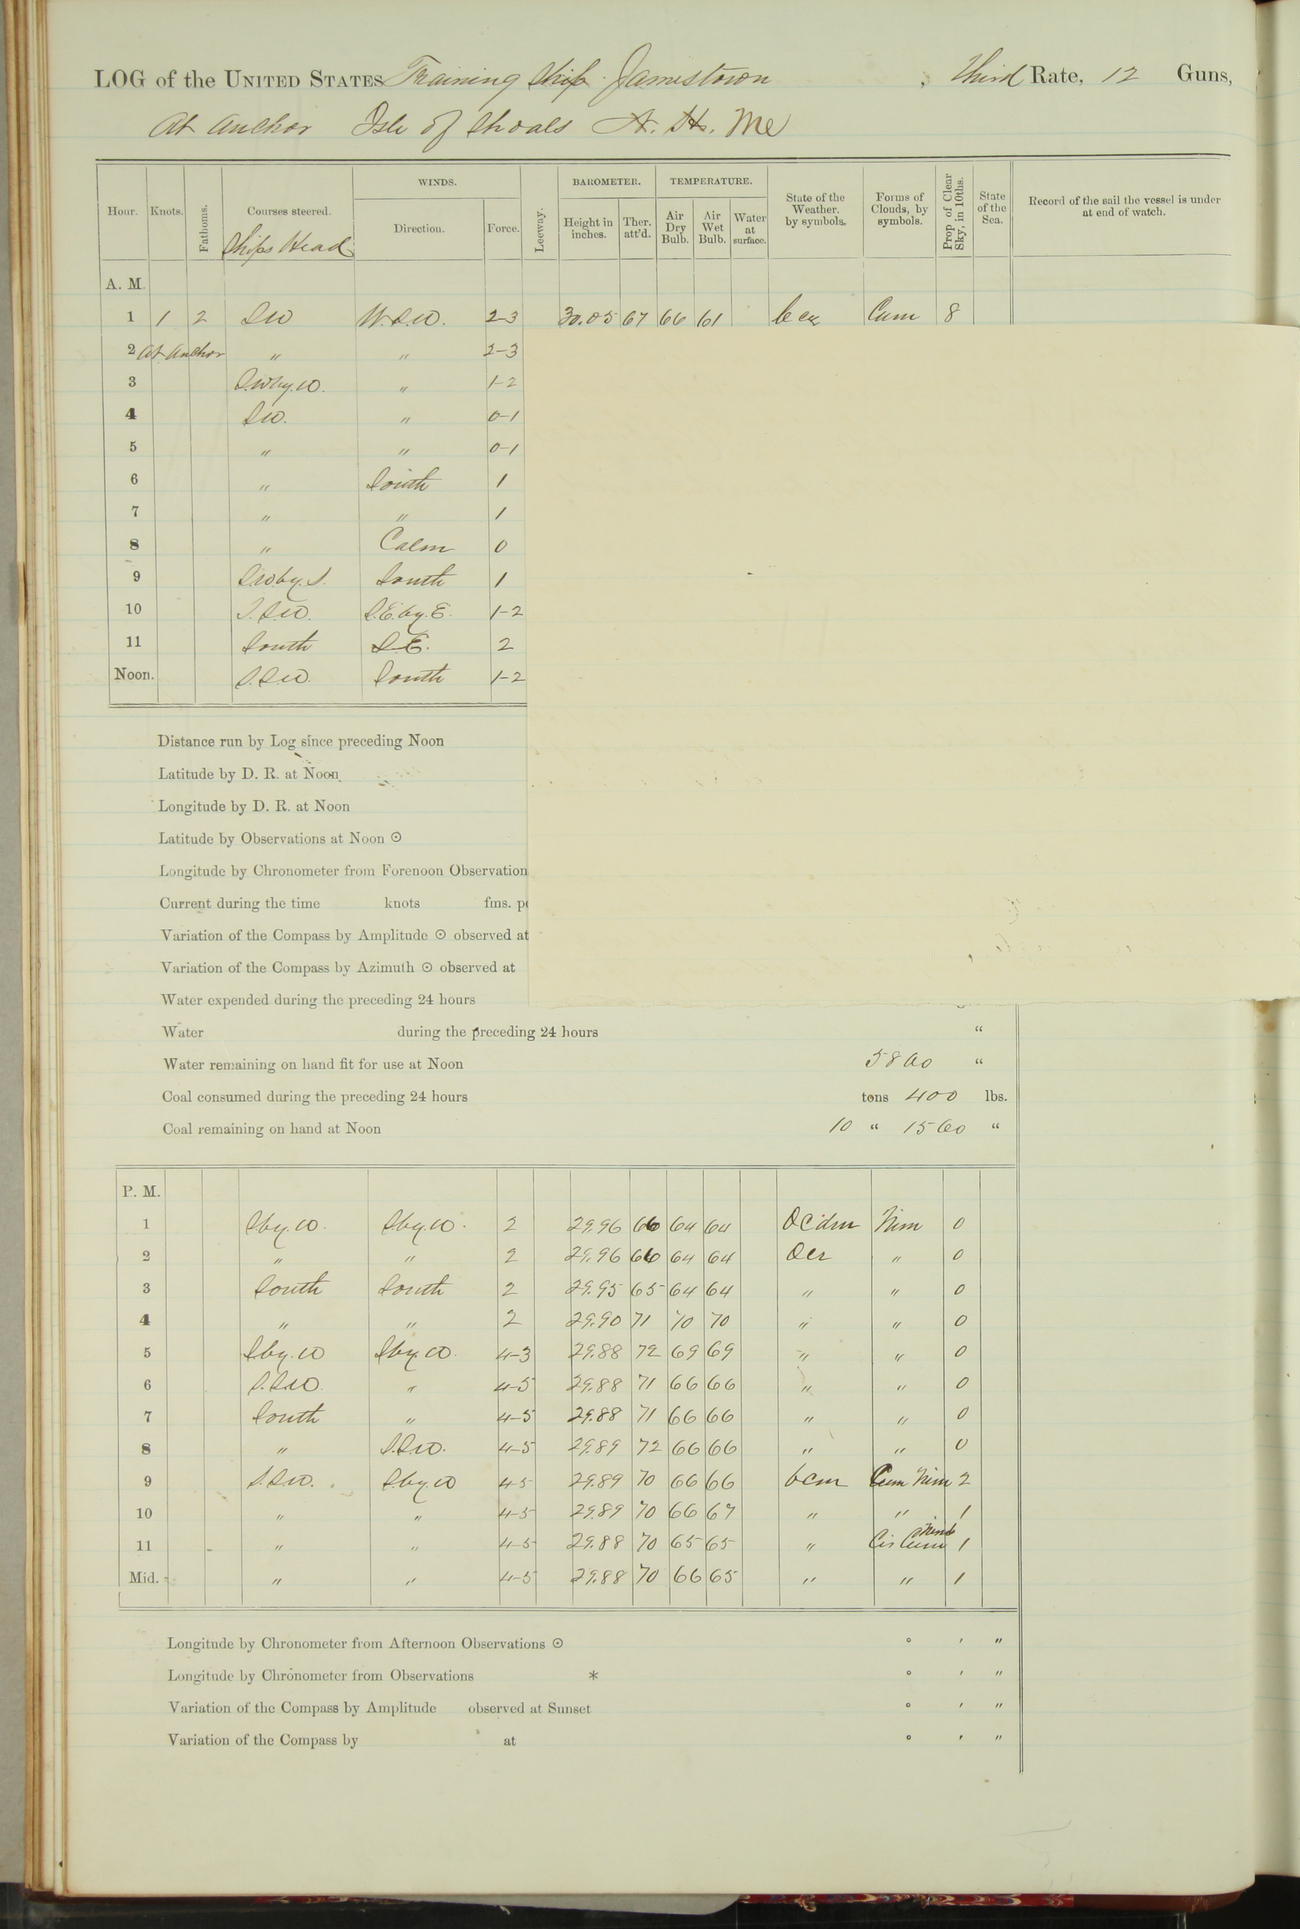 LOG of the UNITED STATES Training Ship Jamestown, Third Rate, 12 Guns,
At Anchor Isle of Shoals N. H. Me
Hour. Knots. Fathoms. Courses steered. Ships Head WINDS. Direction. Force. Leeway. BAROMETER. Height in inches. Ther. att'd. TEMPERATURE. Air Dry Bulb. Air Wet Bulb. Water at surface. State of the Weather, by symbols. Forms of Clouds, by symbols. Prop of Clear Sky, in 10ths. State of the Sea. Record of the sail the vessel is under at end of watch.
A. M.
1 1 2 SW W.S.W. 2-3 30.05 67 66 61 Cum 8
2 At Anchor " " 2-3
3 S.W by. W. " 1-2
4 SW. " 0-1
5 " " 0-1
6 " South 1
7 " " 1
8 " Calm 0
9 S.W by. S. South 1
10 S.SW. S.E. by. E. 1-2
11 South S.E. 2
Noon. S.SW. South 1-2
Distance run by Log since preceding Noon
Latitude by D. R. at Noon
Longitude by D. R. at Noon
Latitude by Observations at Noon ☉
Longitude by Chronometer from Forenoon Observation
Current during the time knots fms.
Variation of the Compass by Amplitude ☉ observed at
Variation of the Compass by Azimuth ☉ observed at
Water expended during the preceding 24 hours
Water during the preceding 24 hours "
Water remaining on hand fit for use at Noon 5860 "
Coal consumed during the preceding 24 hours tons 400 lbs.
Coal remaining on hand at Noon 10 " 1560 "
P. M.
1 S by. W. S by. W. 2 29.96 66 64 64 Nim 0
2 " " 2 29.96 66 64 64 Ocr " 0
3 South South 2 29.95 65 64 64 " " 0
4 " " 2 29.90 71 70 70 " " 0
5 S by. W S by W. 4-3 29.88 72 69 69 " " 0
6 S.SW. " 4-5 29.88 71 66 66 " " 0
7 South " 4-5 29.88 71 66 66 " " 0
8 " S.SW. 4-5 29.89 72 66 66 " " 0
9 S.SW. S.by.W 4-5 29.89 70 66 66 bcm Cum Nim 2
10 " " 4-5 29.89 70 66 67 " " 1
11 " " 4-5 29.88 70 65 65 " Cir Cum Nimb 1
Mid. " " 4-5 29.88 70 66 65 " " 1
Longitude by Chronometer from Afternoon Observations ☉ ° ′ ″
Longitude by Chronometer from Observations * ° ′ ″
Variation of the Compass by Amplitude observed at Sunset ° ′ ″
Variation of the Compass by at ° ′ ″